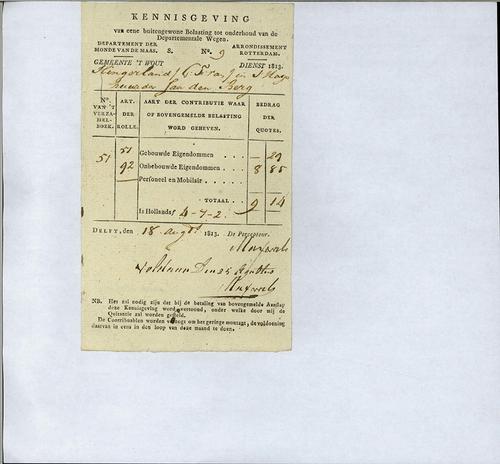 KENNISGEVING
VAN eene buitengewone Belasting tot onderhoud van de
Departementale Wegen.
DEPARTEMENT DER MONDE VAN DE MAAS. 8. No. 9 ARRONDISSEMENT ROTTERDAM.
GEMEENTE 'T WOUT DIENST 1813.
in 's Hage
Jan den Berg
No. VAN 'T VERZAMELBOEK. ART. DER ROLLE. AART DER CONTRIBUTIE WAAR OF BOVENGEMELDE BELASTING WORD GEHEVEN. BEDRAG DER QUOTES.
51 51 Gebouwde Eigendommen . . . . — 29
92 Onbebouwde Eigendommen . . . 8 85
— Personeel en Mobilair . . . . .
TOTAAL . . . 9 14
Is Hollands f 4-7-2
DELFT, den 18 augt 1813. De Percepteur.
Voldaan den 25 Augustus
NB. Het zal nodig zijn dat bij de betaling van bovengemelde Aanslag
deze Kennisgeving word vertoond, onder welke door mij de
Quitantie zal worden gesteld.
De Contribuablen worden verzogt om het geringe montant, de voldoening
daarvan in eens in den loop van deze maand te doen.